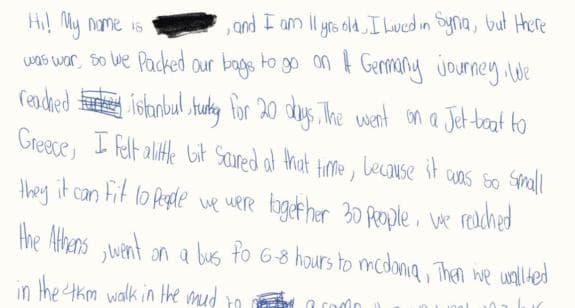 Hi! My name is , and I am 11 yrs old, I lived in Syria, but there
was war, so we Packed our bags to go on A Germany journey. We
reached istanbul, turky for 20 days. The went on a Jet-boat to
Greece, I felt alittle bit Scared at that time, because it was so small
they it can Fit 10 people we were together 30 People. We reached
the Athens, went on a bus fo 6-8 hours to mcdonia, Then we wallked
in the 4km walk in the mud to a camp